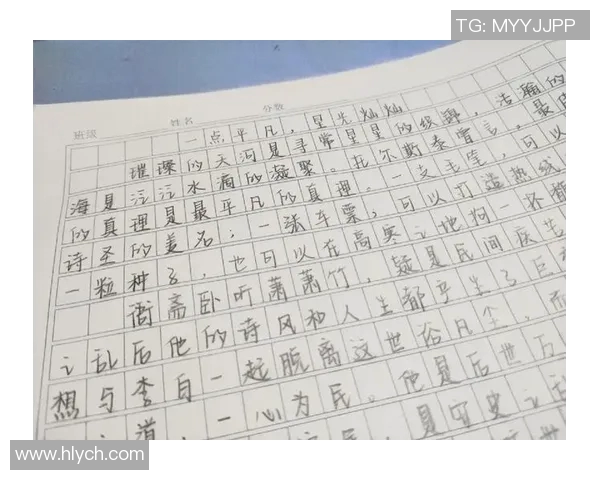 TG: MYYJJPP
班级 姓名 分数
一点平凡，星光灿灿
璀璨的天河是寻常星星的缤、浩瀚的
海是泛泛水滴的凝聚。托尔斯泰曾言，最
的真理是最平凡的真理。一支毛笔，可以
诗圣的美名；一张车票，可以打造热线
一粒种子，也可以在高寒之地拘一怀
衙斋卧听萧萧竹，疑是民间疾苦
之乱后他的诗风和人生都乎生了巨
想与李白一起脱离这世俗凡尘，而
道，一心为民。他是后世万
民，是守史之
www.hlych.com